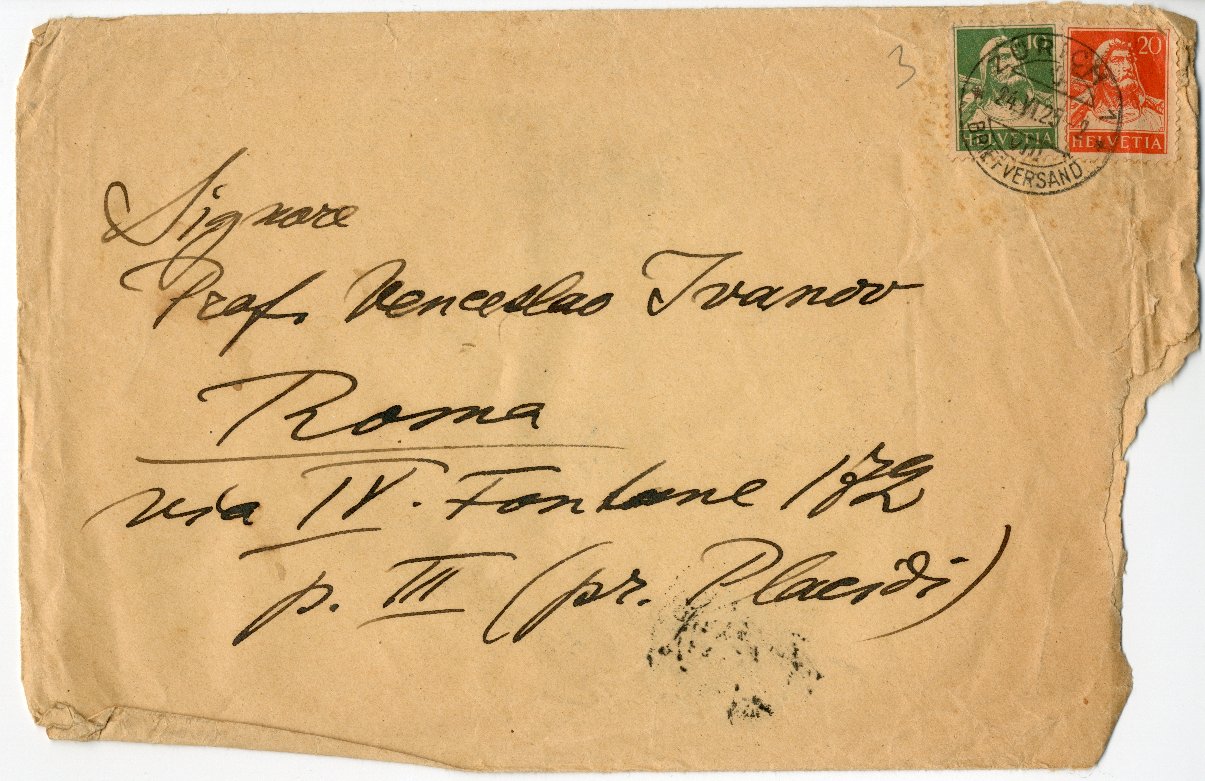 3
10
HELVETIA
20
HELVETIA
ZÜRICH 1
24.VI.25
BRIEFVERSAND
Signore
Prof. Venceslao Ivanov
Roma
via IV. Fontane 172
p. III (pr. Placidi)